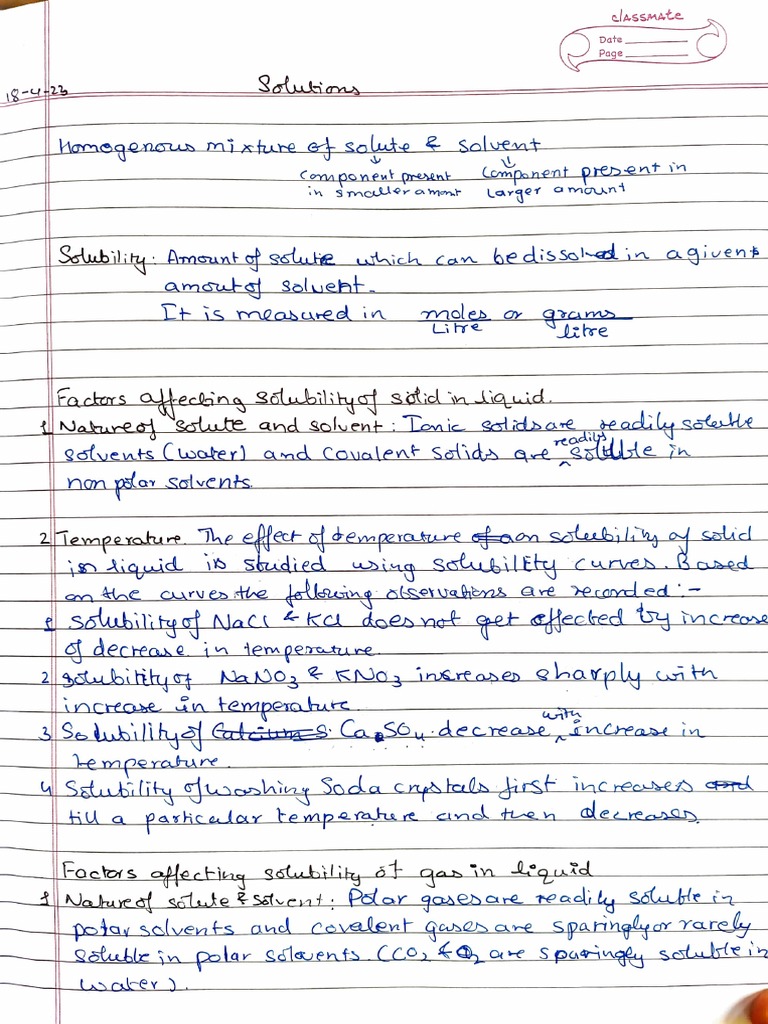 classmate
Date
Page
18-4-23
Solutions
Homogenous mixture of solute & solvent
component present component present in
in smaller amont larger amount
Solubility: Amount of solute which can be dissolved in a given
amout of solvent.
It is measured in moles or grams
Litre litre
Factors affecting solubility of solid in liquid.
1 Nature of solute and solvent: Ionic solids are readily soluble
solvents (water) and covalent solids are readily soluble in
non polar solvents
2 Temperature. The effect of temperature on solubility of solid
in liquid is studied using solubility curves. Based
on the curves the following observations are recorded:-
1 Solubility of NaCl & KCl does not get affected by increase
of decrease in temperature.
2 Solubility of NaNO3 & KNO3 increases sharply with
increase in temperature.
3 Solubility of CaSO4 decrease with increase in
temperature.
4 Solubility of washing Soda crystals first increases
till a particular temperature and then decreases.
Factors affecting solubility of gas in liquid
1 Nature of solute & solvent: Polar gases are readily soluble in
polar solvents and covalent gases are sparingly or rarely
soluble in polar solvents. (CO2 & O2 are sparingly soluble in
water).